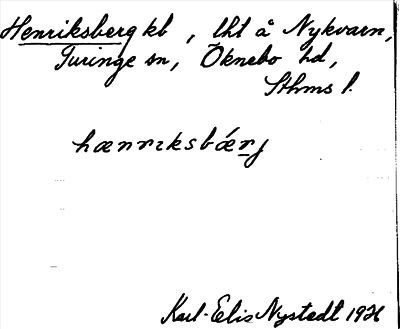 Henriksberg kb, lht å Nykvarn,
Turinge sn, Öknebo hd,
Sthms l.
hænrıksbǽrj
Karl-Elis Nystedt 1926